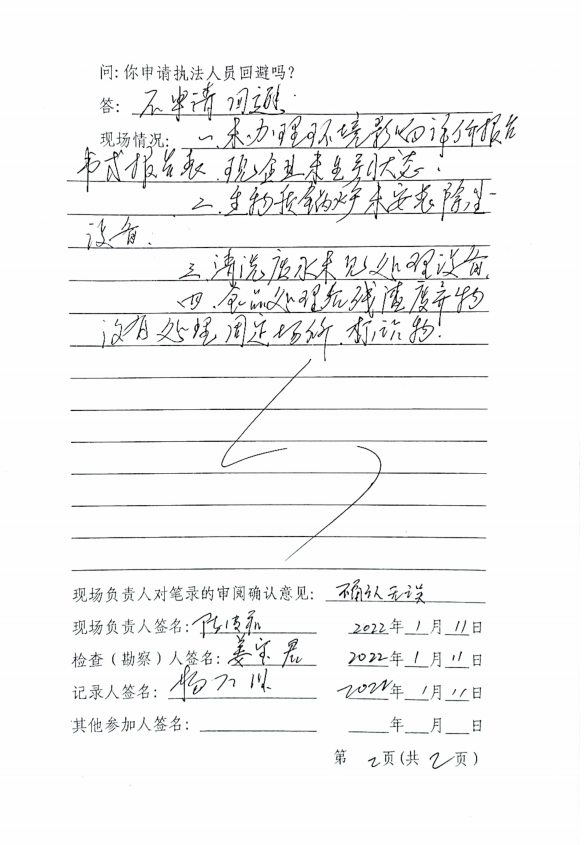 问:你申请执法人员回避吗?
答: 不申请回避.
现场情况: 一.未办理环境影响评价报告
书或报告表.现企业未生产状态.
二.生物质锅炉未安装除尘
设备.
三.清洗废水未见处理设备.
四.食品处理后残渣废弃物
没有处理固定场所.标识物.
现场负责人对笔录的审阅确认意见: 确认无误
现场负责人签名: 2022年1月11日
检查(勘察)人签名: 姜宝君 2022年1月11日
记录人签名: 杨 2022年1月11日
其他参加人签名: 年 月 日
第2页(共2页)